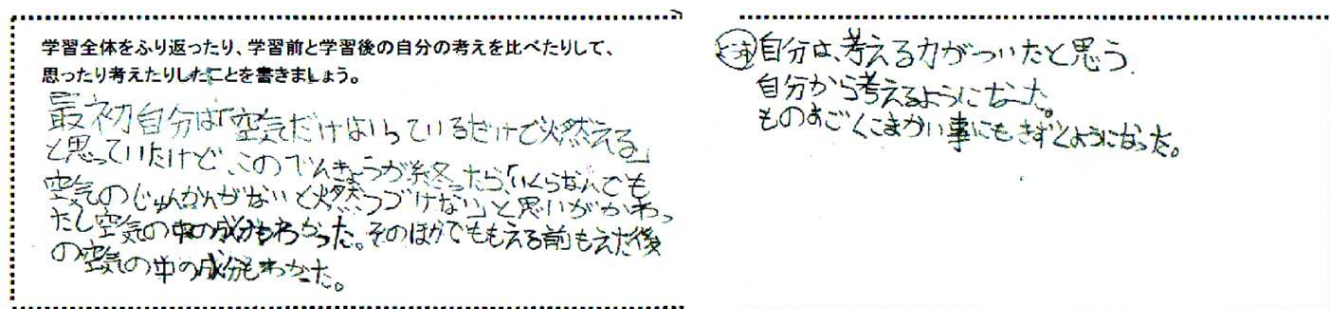 学習全体をふり返ったり、学習前と学習後の自分の考えを比べたりして、
思ったり考えたりしたことを書きましょう。
最初自分は「空気だけはいっているだけで燃える」
と思っていたけど、このべんきょうが終ったら、「いくらなんでも
空気のじゅんかんがないと燃えつづけない」と思いがかわっ
たし空気の中の成分もわかった。そのほかでももえる前もえた後
の空気の中の成分もわかった。
自分は、考える力がついたと思う
自分から考えるようになった。
ものすごくこまかい事にもきずくようになった。